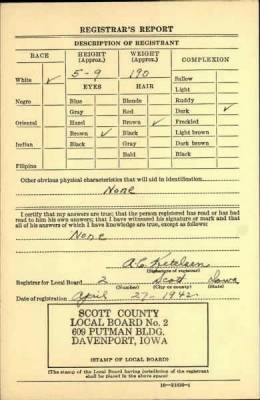 REGISTRAR'S REPORT
DESCRIPTION OF REGISTRANT
RACE HEIGHT (Approx.) WEIGHT (Approx.) COMPLEXION
White ✓ 5-9 190 Sallow
EYES HAIR Light
Negro Blue Blonde Ruddy
Gray Red Dark ✓
Oriental Hazel Brown ✓ Freckled
Brown ✓ Black Light brown
Indian Black Gray Dark brown
Bald Black
Filipino
Other obvious physical characteristics that will aid in identification
None
I certify that my answers are true; that the person registered has read or has had
read to him his own answers; that I have witnessed his signature or mark and that
all of his answers of which I have knowledge are true, except as follows:
None
A.C. Ketelsen
(Signature of registrar)
Registrar for Local Board 2 Scott Iowa
(Number) (City or county) (State)
Date of registration April 27-1942
SCOTT COUNTY
LOCAL BOARD No. 2
609 PUTMAN BLDG.
DAVENPORT, IOWA
(STAMP OF LOCAL BOARD)
(The stamp of the Local Board having jurisdiction of the registrant
shall be placed in the above space)